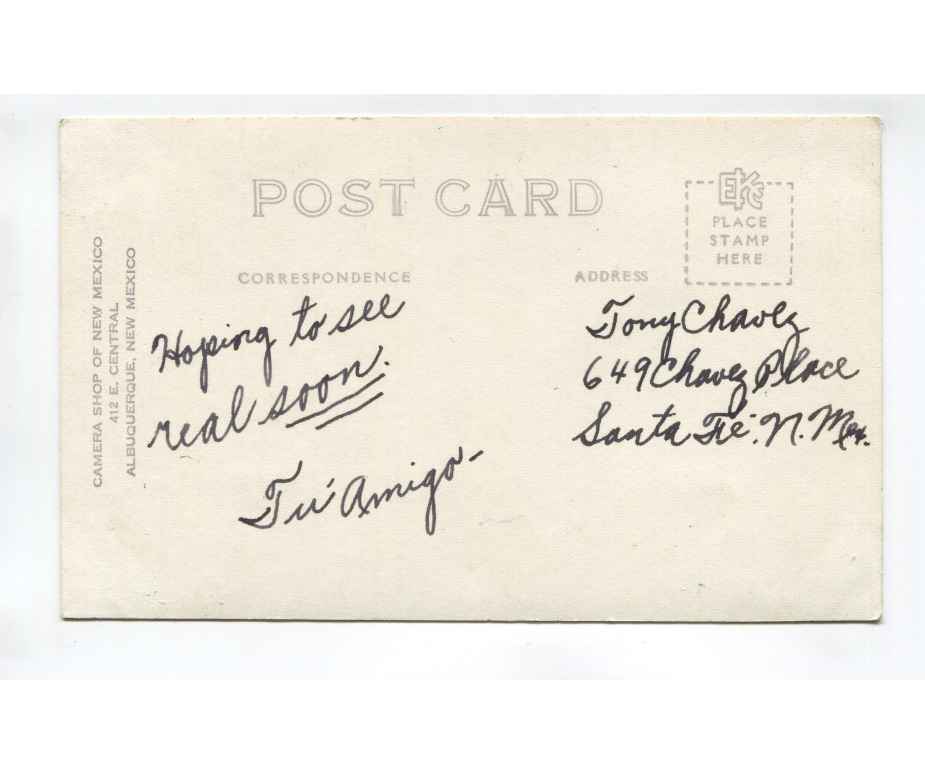 POST CARD
EKC
PLACE
STAMP
HERE
CAMERA SHOP OF NEW MEXICO
412 E. CENTRAL
ALBUQUERQUE, NEW MEXICO
CORRESPONDENCE
ADDRESS
Hoping to see
real soon.
Tú Amigo-
Tony Chavez
649 Chavez Place
Santa Fé. N. Mex.